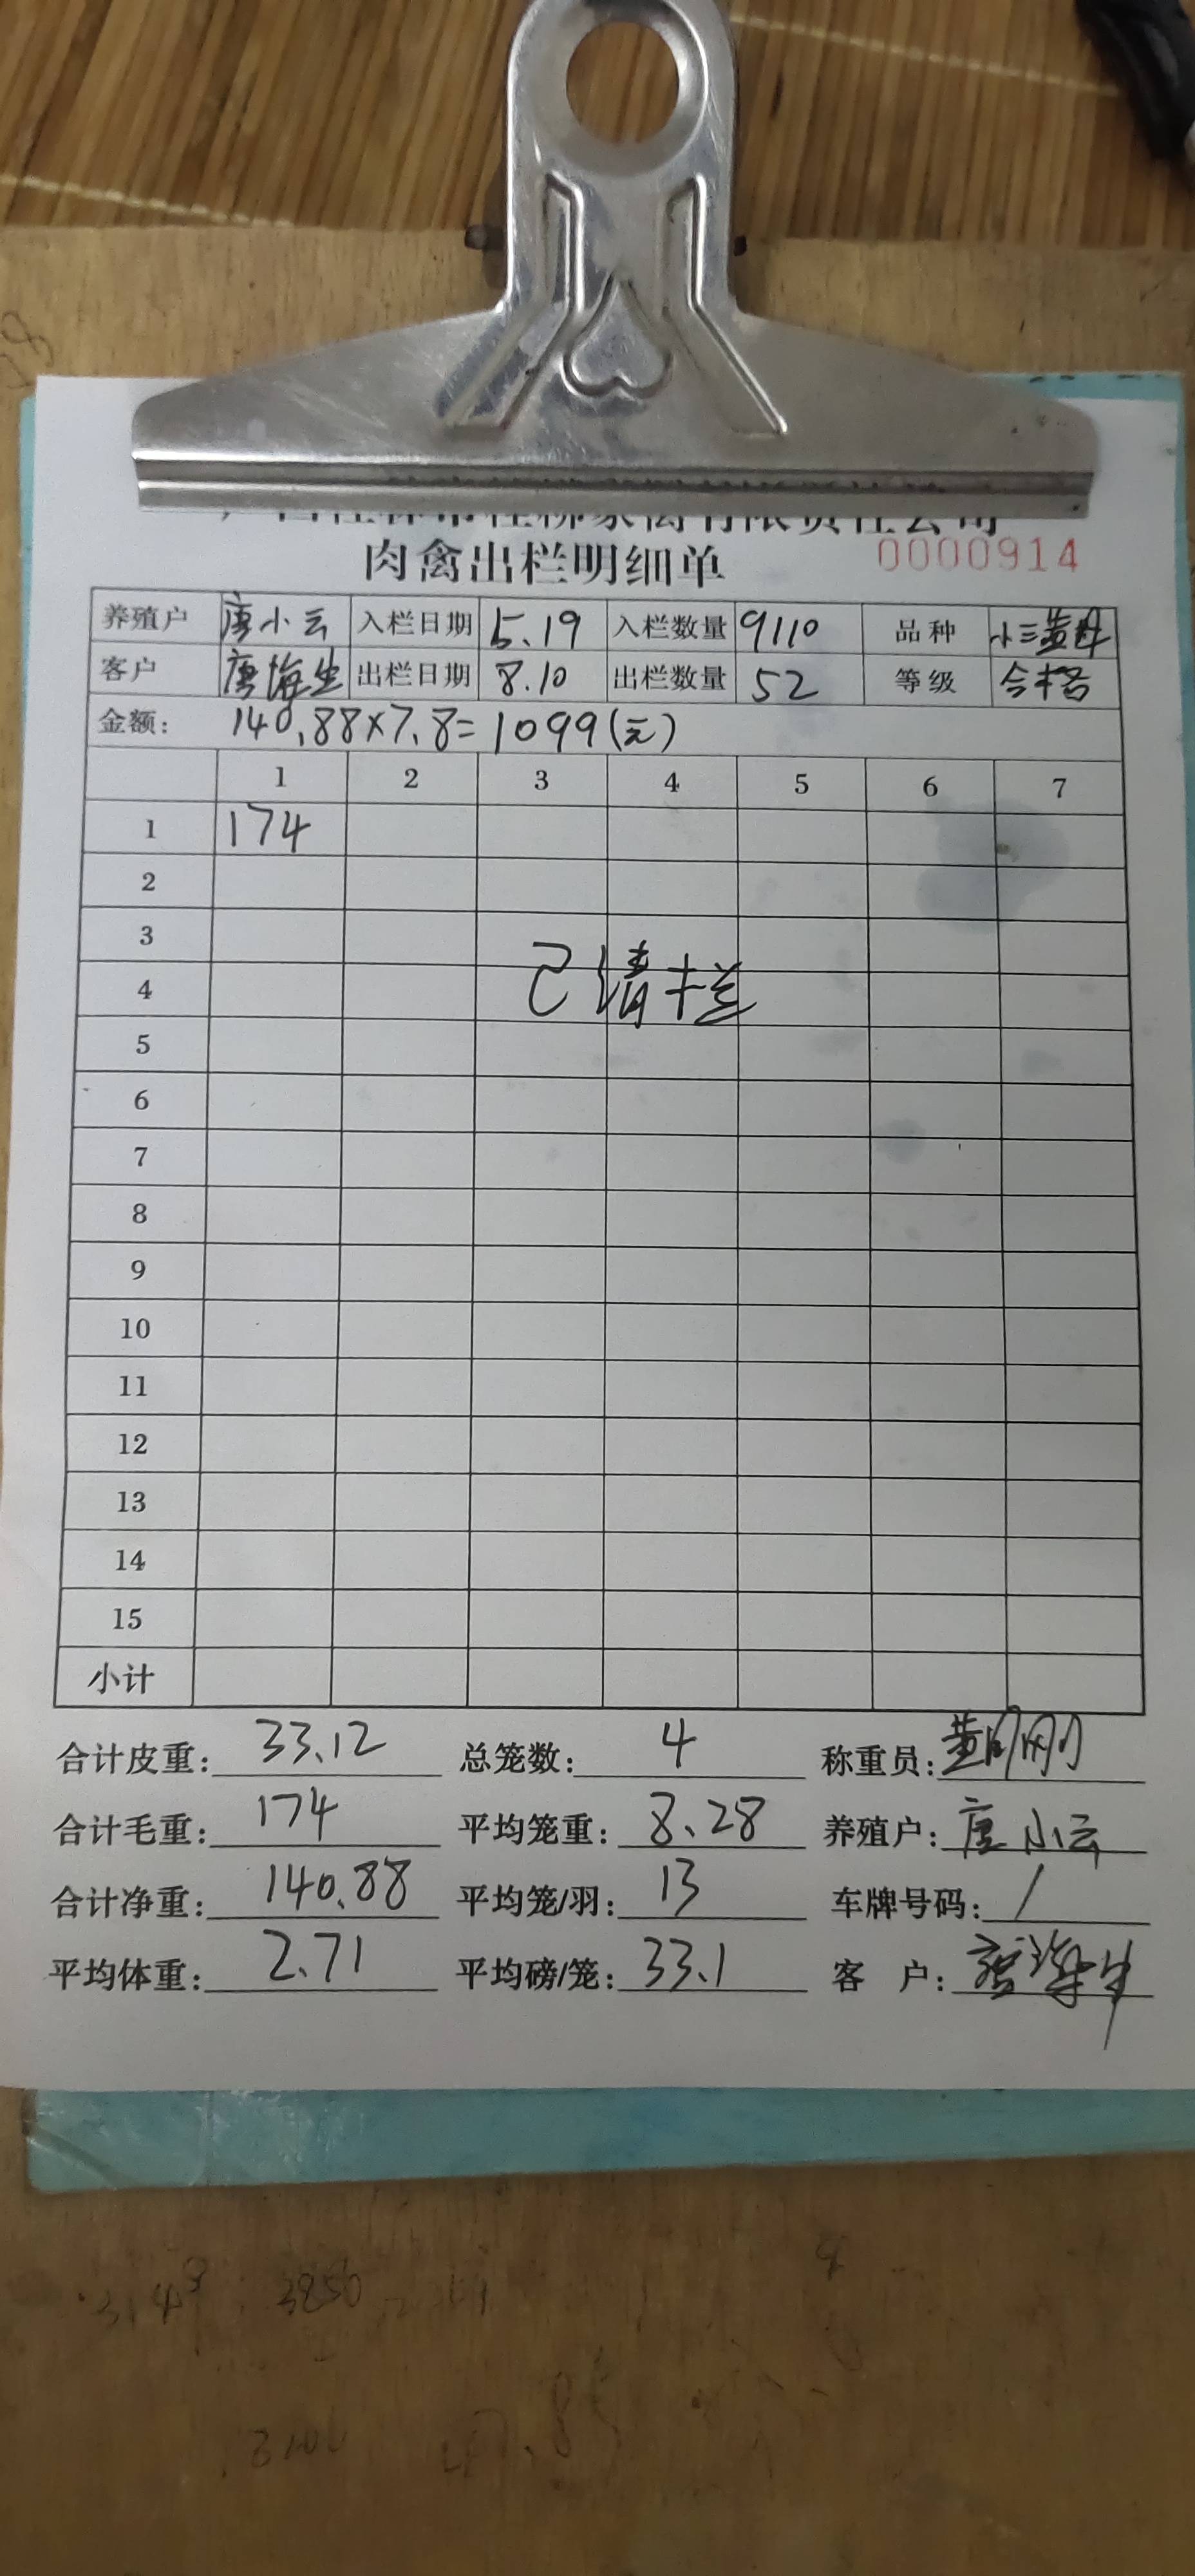 肉禽出栏明细单 0000914
养殖户 唐小云 入栏日期 5.19 入栏数量 9110 品种 小三黄母
客户 唐海生 出栏日期 8.10 出栏数量 52 等级 合格
金额: 140.88×7.8=1099(元)
1 2 3 4 5 6 7
1 174
2
3
已清栏
4
5
6
7
8
9
10
11
12
13
14
15
小计
合计皮重: 33.12 总笼数: 4 称重员: 黄
合计毛重: 174 平均笼重: 8.28 养殖户: 唐小云
合计净重: 140.88 平均笼/羽: 13 车牌号码: /
平均体重: 2.71 平均磅/笼: 33.1 客 户: 唐海生
3850